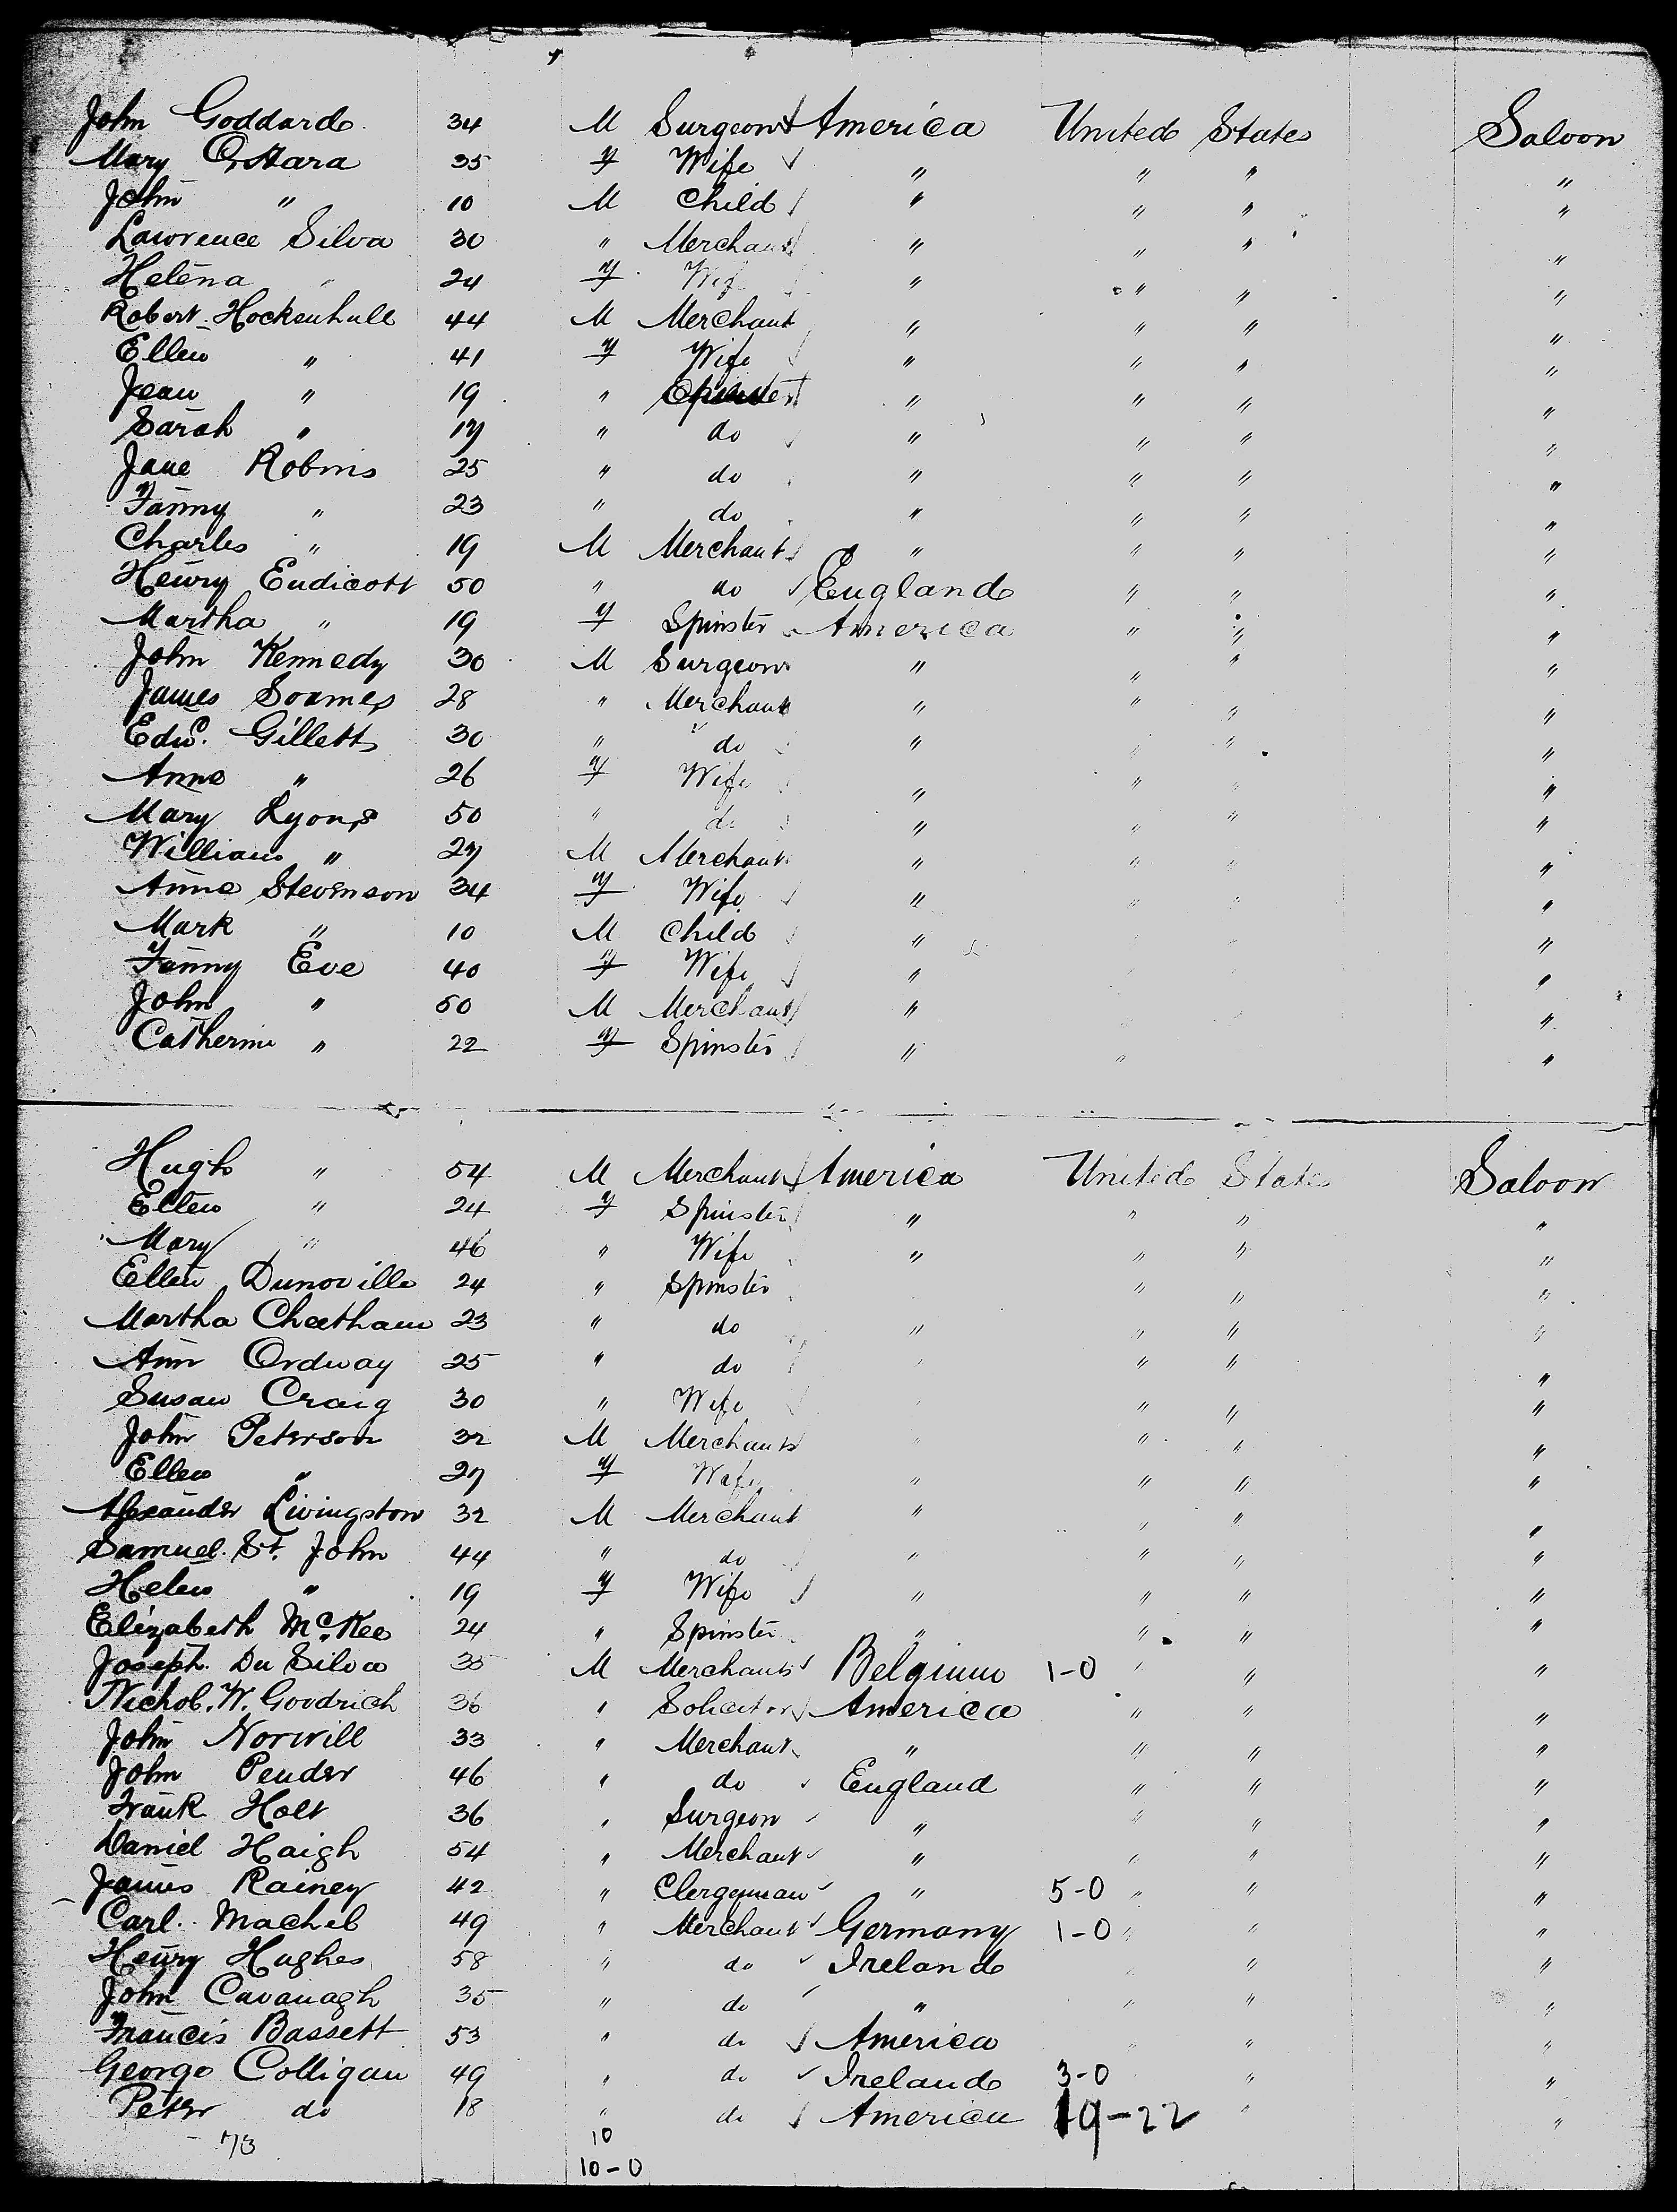 John Goddard 34 M Surgeon America United States Saloon
Mary O'Hara 35 F Wife " " " "
John " 10 M Child " " " "
Lawrence Silva 30 " Merchant " " " "
Helena " 24 F Wife " " " "
Robert Hockenhull 44 M Merchant " " " "
Ellen " 41 F Wife " " " "
Jean " 19 " Spinster " " " "
Sarah " 17 " do " " " "
Jane Robins 25 " do " " " "
Fanny " 23 " do " " " "
Charles " 19 M Merchant " " " "
Henry Endicott 50 " do England " " "
Martha " 19 F Spinster America " " "
John Kennedy 30 M Surgeon " " " "
James Soames 28 " Merchant " " " "
Edwd. Gillett 30 " do " " " "
Anne " 26 F Wife " " " "
Mary Lyons 50 " do " " " "
William " 27 M Merchant " " " "
Anne Stevenson 34 F Wife " " " "
Mark " 10 M Child " "
Fanny Eve 40 F Wife " "
John " 50 M Merchant " "
Catherine " 22 F Spinster " " "
Hugh " 54 M Merchant America United States Saloon
Ellen " 24 F Spinster " " " "
Mary " 46 " Wife " " " "
Ellen Dunoville 24 " Spinster " " "
Martha Cheetham 23 " do " " " "
Ann Ordway 25 " do " " " "
Susan Craig 30 " Wife " " " "
John Peterson 32 M Merchant " " " "
Ellen " 27 F Wife " " " "
Alexander Livingston 32 M Merchant " " " "
Samuel St. John 44 " do " " " "
Helen " 19 F Wife " " " "
Elizabeth McKee 24 " Spinster " " " "
Joseph Du Silva 35 M Merchant Belgium 1-0 " " "
Nichol. W. Goodrich 36 " Solicitor America " " "
John Norvill 33 " Merchant " " " "
John Pender 46 " do England " " "
Frank Holt 36 " Surgeon " " " "
Daniel Haigh 54 " Merchant " " " "
James Rainey 42 " Clergyman " 5-0 " " "
Carl Machel 49 " Merchant Germany 1-0 " " "
Henry Hughes 58 " do Ireland " " "
John Cavanagh 35 " do " " " "
Francis Bassett 53 " do America " " "
George Colligan 49 " do Ireland 3-0 " "
Peter do 18 " do America 19-22 " "
73 10
10-0